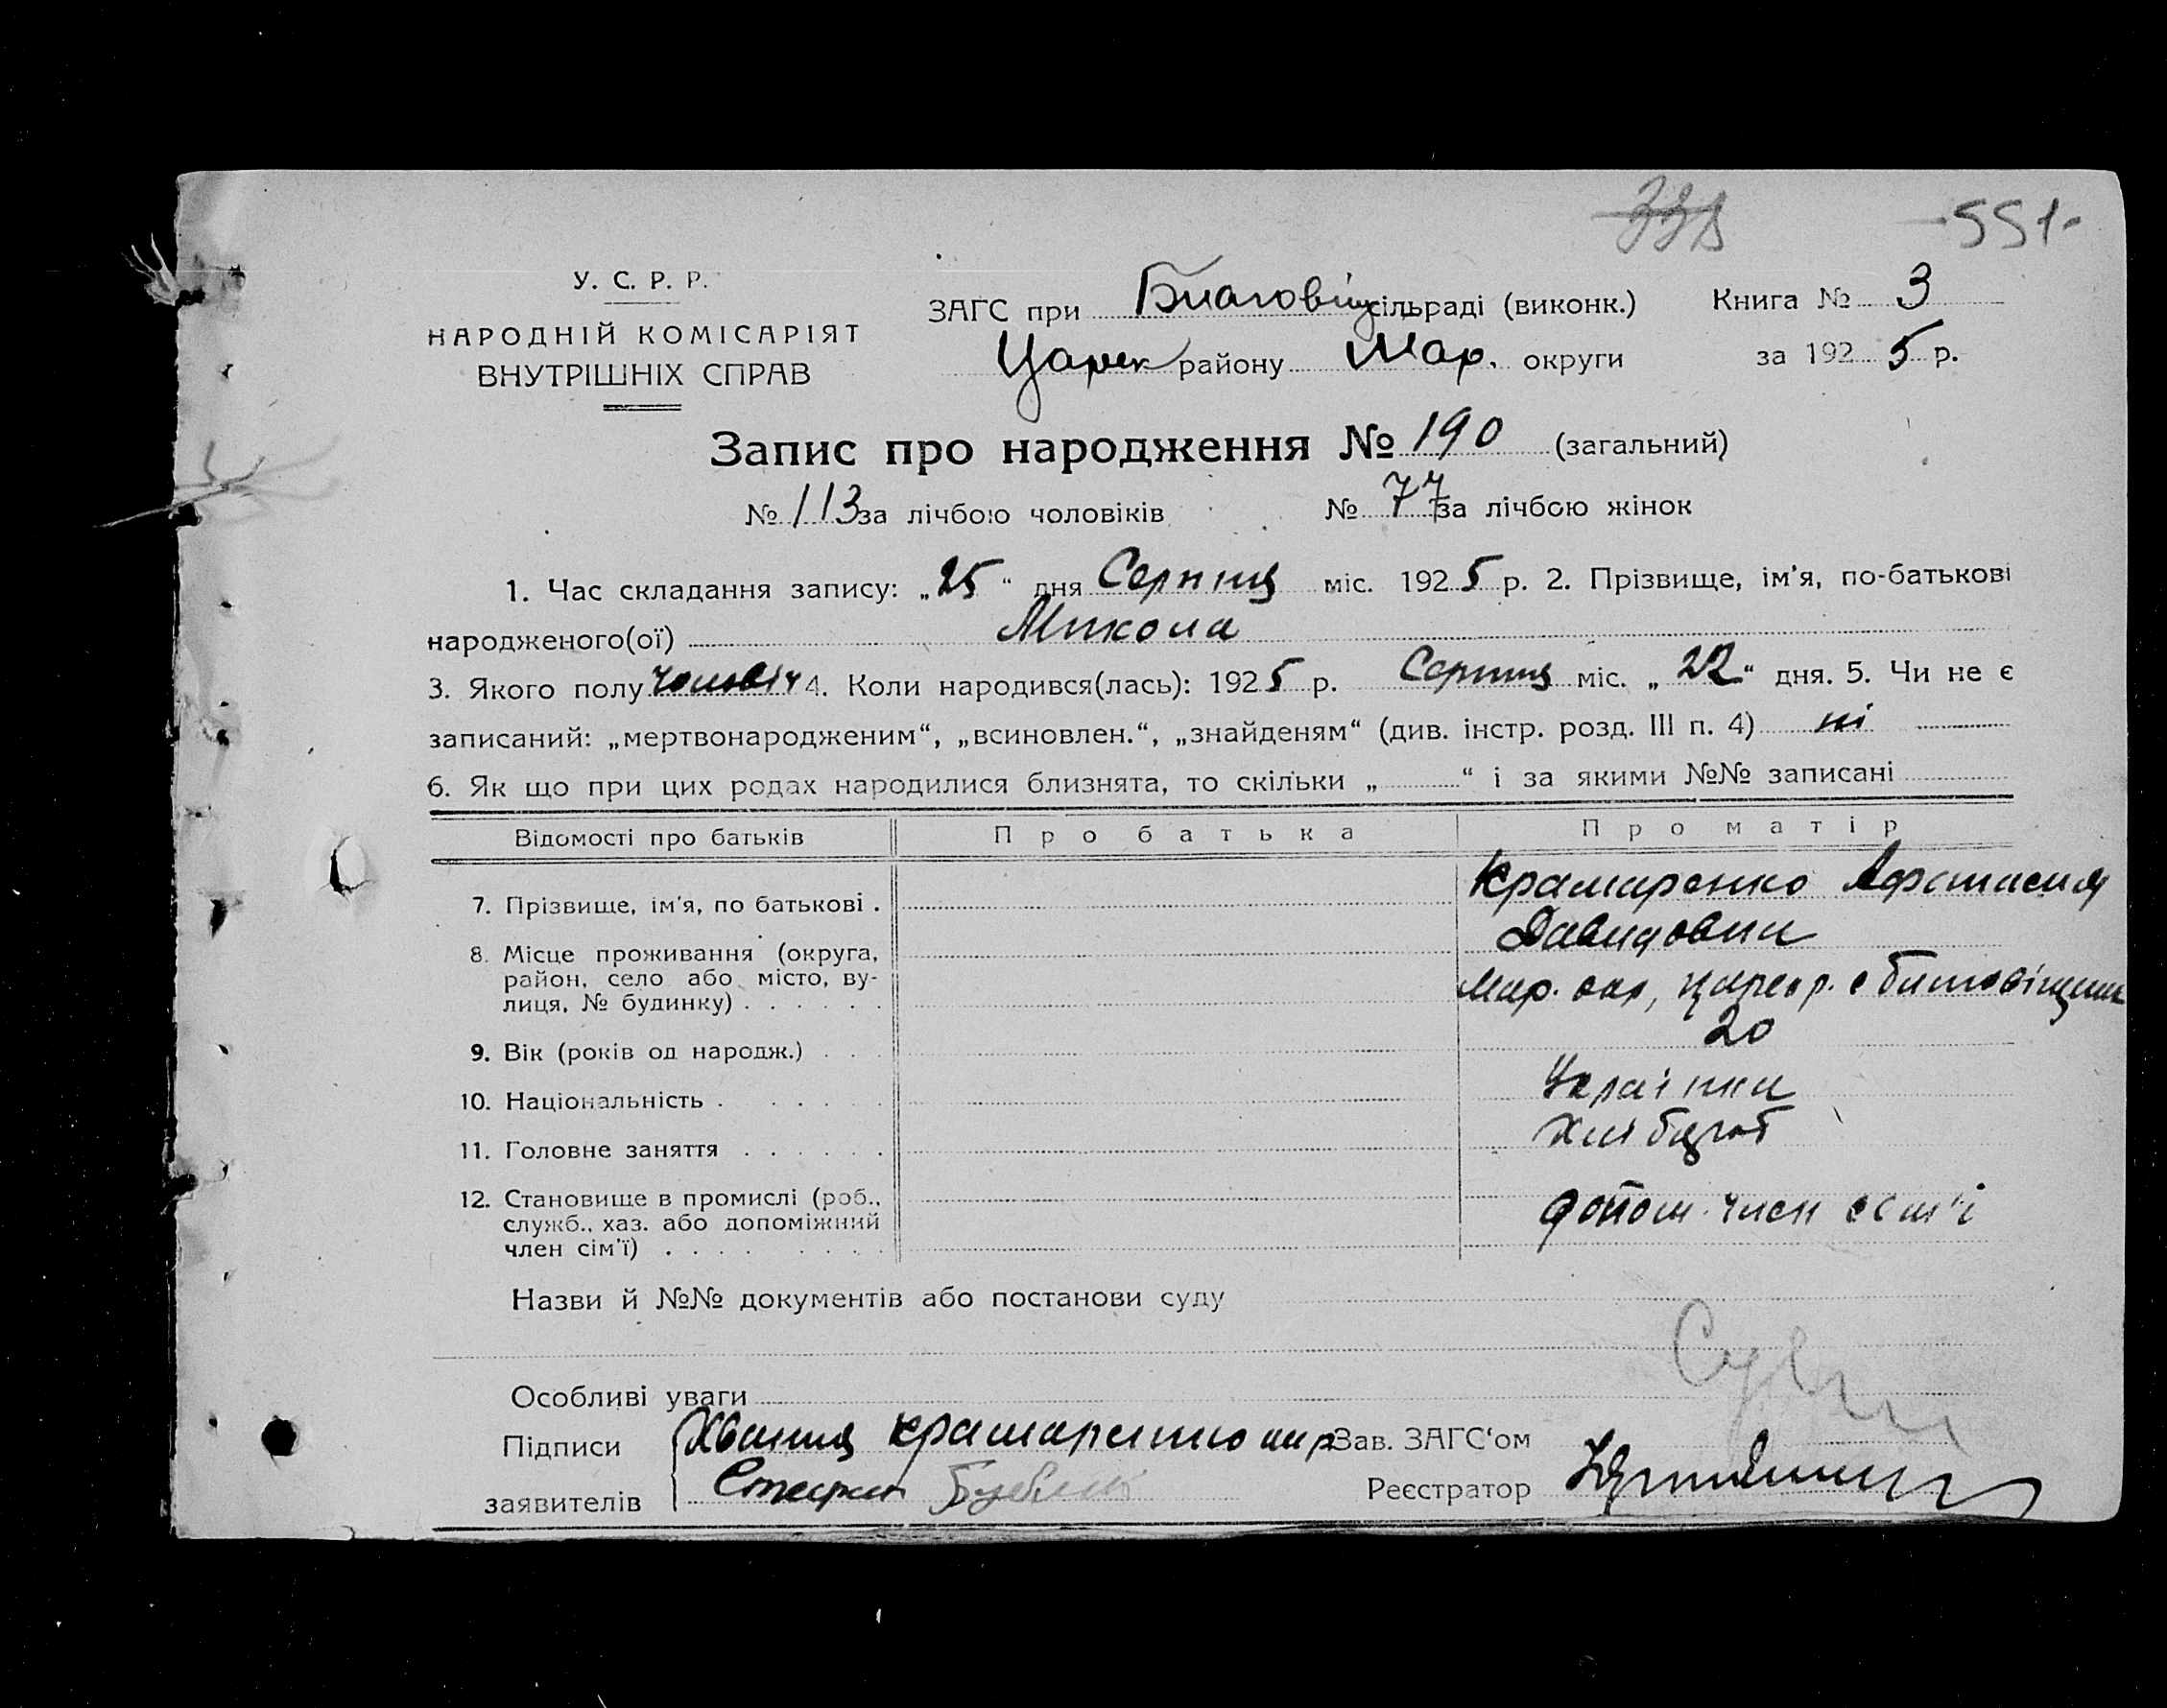 338 -551-
У. С. Р. Р.
НАРОДНІЙ КОМІСАРІЯТ
ВНУТРІШНІХ СПРАВ
ЗАГС при Благовіщ сільраді (виконк.) Книга № 3
Царек району Мар. округи за 1925 р.
Запис про народження № 190 (загальний)
№ 113 за лічбою чоловіків № 77 за лічбою жінок
1. Час складання запису: „25“ дня Серпня міс. 1925 р. 2. Прізвище, ім'я, по-батькові
народженого(ої) Микола
3. Якого полу чоловіч 4. Коли народився(лась): 1925 р. Серпня міс. „22“ дня. 5. Чи не є
записаний: „мертвонародженим“, „всиновлен.“, „знайденям“ (див. інстр. розд. III п. 4) ні
6. Як що при цих родах народилися близнята, то скільки „ “ і за якими №№ записані
Відомості про батьків Про батька Про матір
7. Прізвище, ім'я, по батькові . Крамаренко Афанасия
Давидовна
8. Місце проживання (округа,
район, село або місто, ву-
лиця, № будинку) . . . . . . Мар. окр,
9. Вік (років од народж.) . . . 20
10. Національність . . . . . Українка
11. Головне заняття . . . . . . Хлібороб
12. Становище в промислі (роб.,
служб., хаз. або допоміжний
член сім'ї) . . . . . . . . . допом. член сім'ї
Назви й №№ документів або постанови суду
Особливі уваги
Підписи Крамаренко Зав. ЗАГС'ом
заявителів Реєстратор